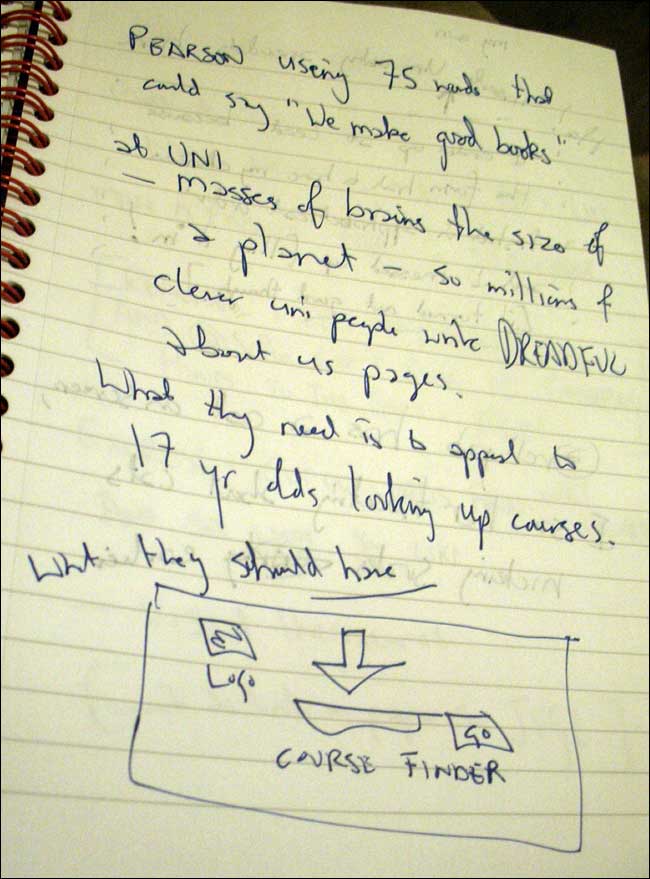 PEARSON using 75 words that
could say "We make good books"
at UNI
— masses of brains the size of
a planet — so millions of
clever uni people write DREADFUL
about us pages.
What they need is to appeal to
17 yr olds looking up courses.
What they should have
LOGO
GO
COURSE FINDER